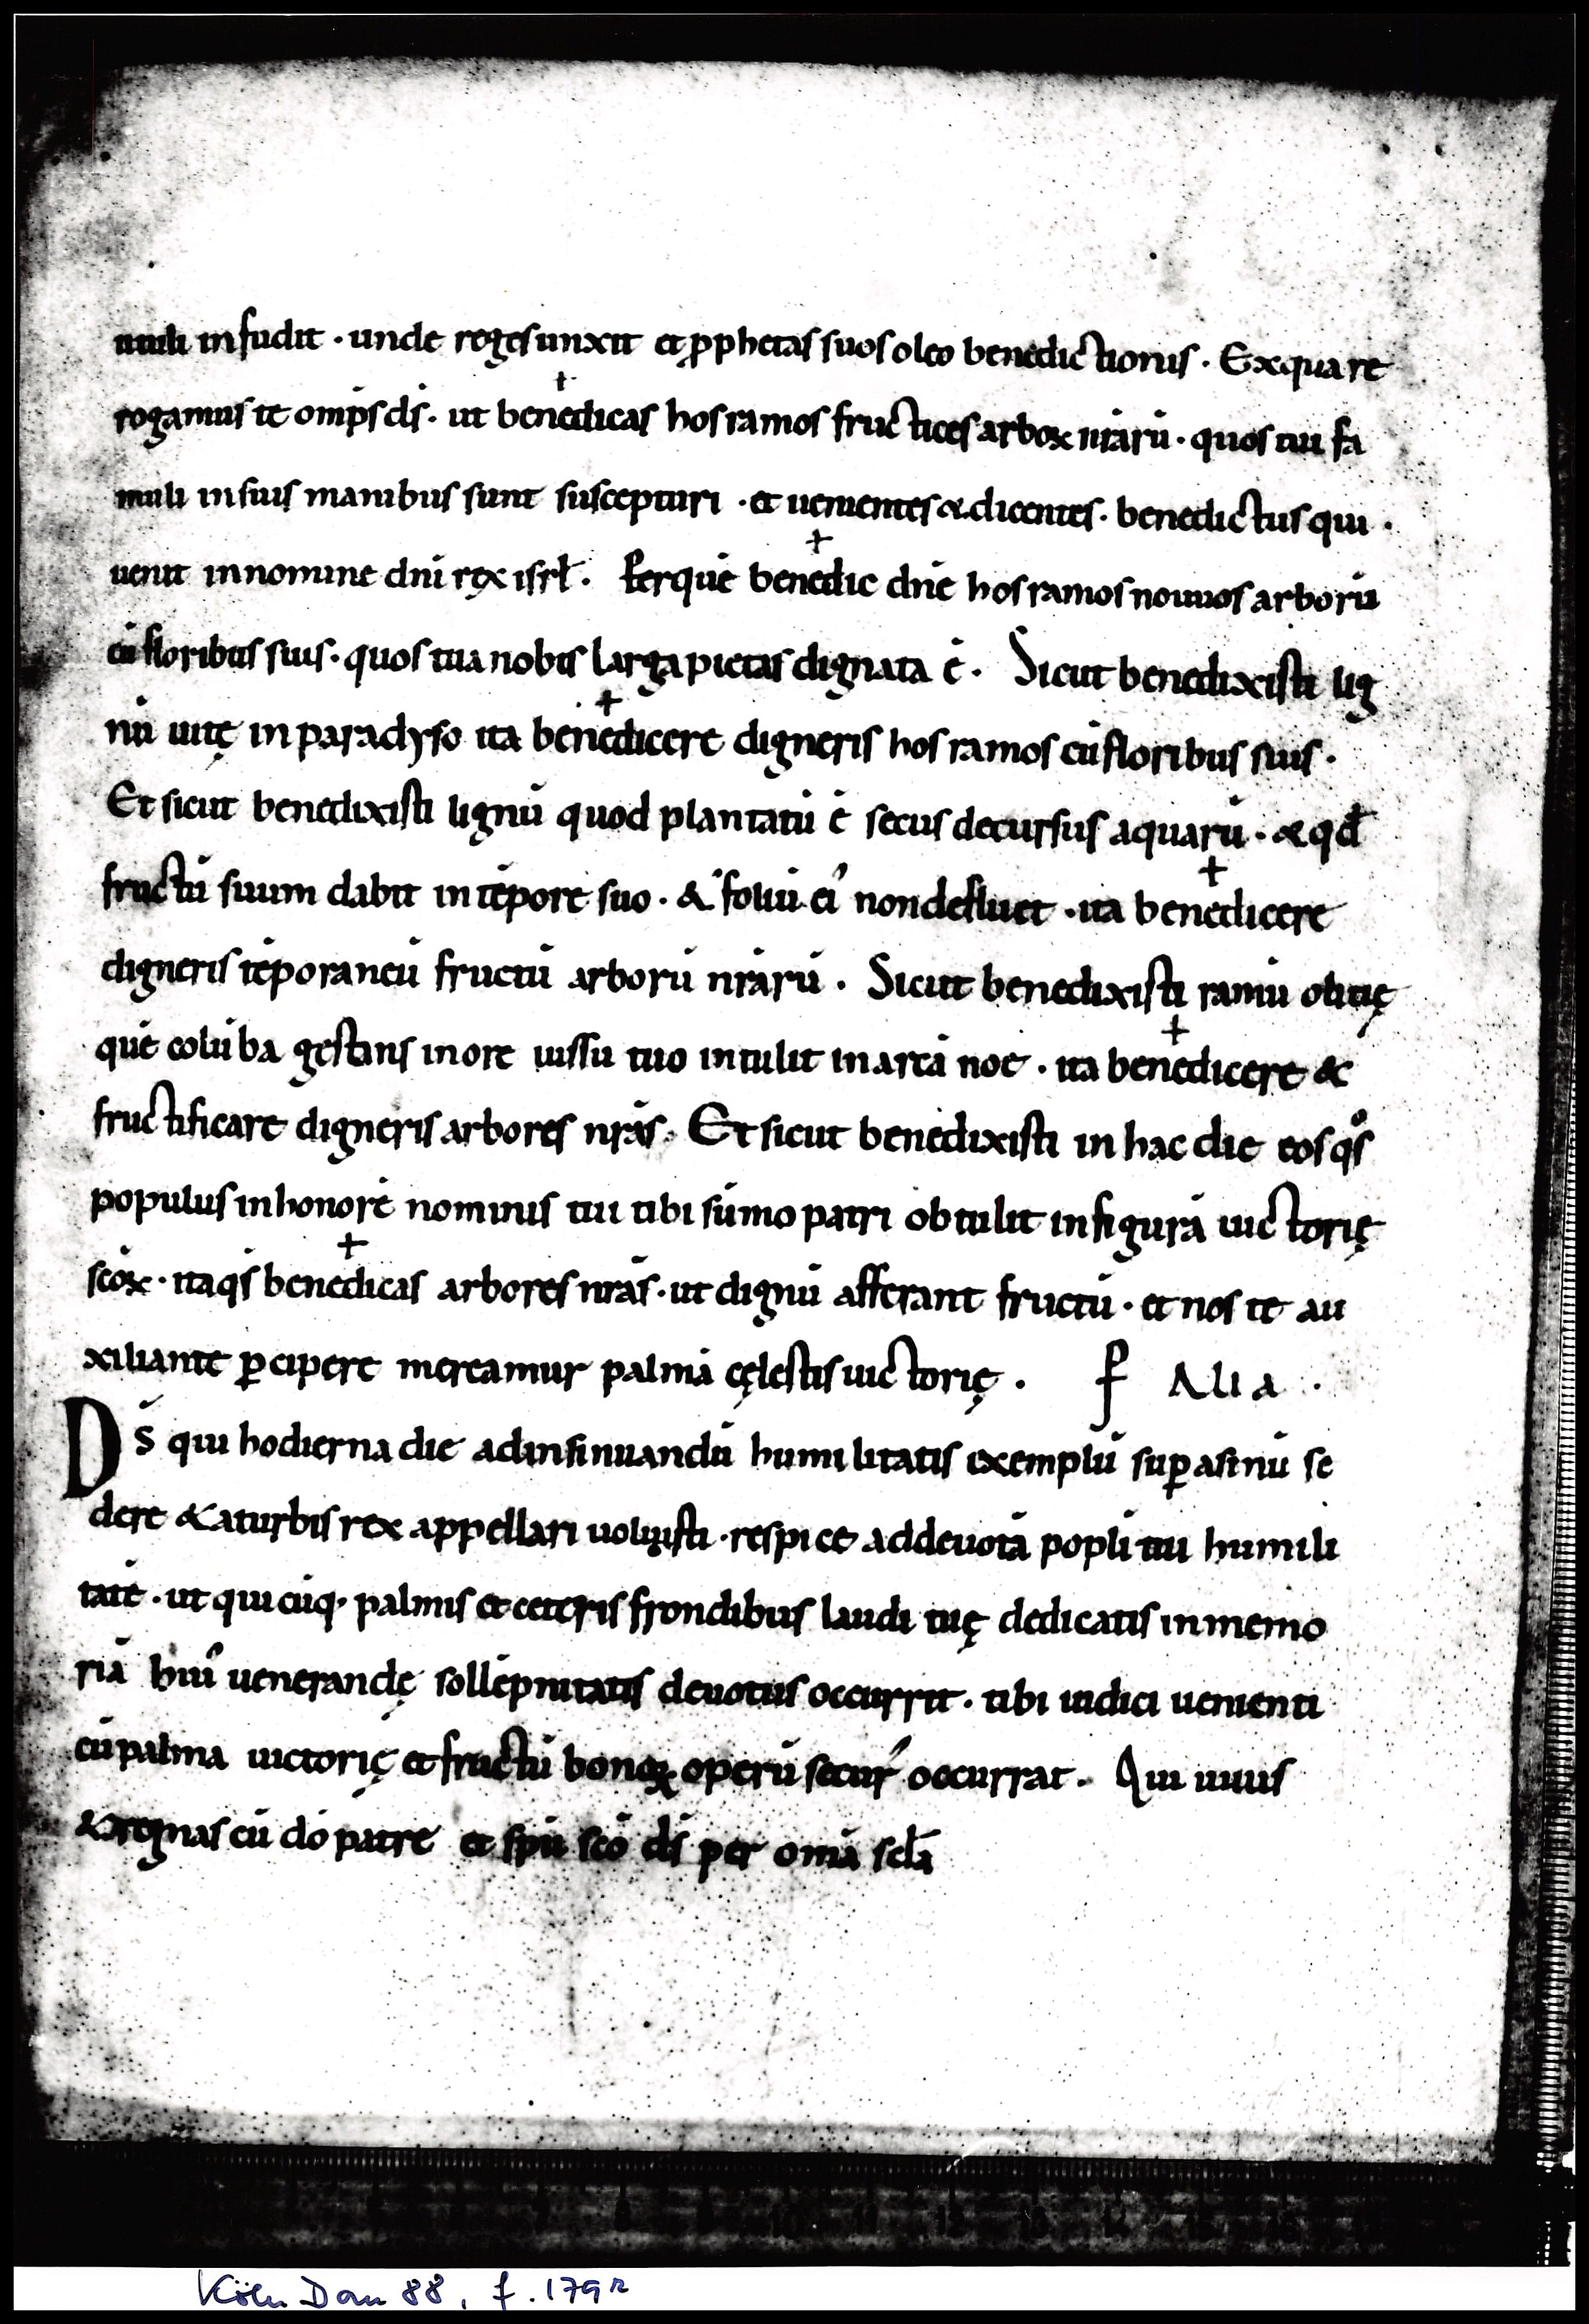 muli infudit · unde reges unxit et pphetas suos oleo benedictionis · Ex qua re
rogamus te omips ds · ut benedicas hos ramos fructices arboꝝ nrarū · quos tui fa
muli in suis manibus sunt suscepturi · et uenientes & dicentes · benedictus qui ·
uenit in nomine dni rex isrl̄ · Ferque benedic dne hos ramos nouuos arborū
cū floribus suis · quos tua nobis larga pietas dignata ē · Sicut benedixisti lig
nū uitę in paradyso ita benedicere digneris hos ramos cū floribus suis ·
Et sicut benedixisti lignū quod plantatū ē secus decursus aquarū · & qd̄
fructū suum dabit in tēpore suo · & foliū ei' non defluet · ita benedicere
digneris tēporaneū fructū arborū nrārū · Sicut benedixisti ramū oliuę
quē colūba gestans in ore iussu tuo intulit in arcā noe · ita benedicere &
fructificare digneris arbores nrās · Et sicut benedixisti in hac die eos qͦs
populus in honorē nominis tui tibi sūmo patri obtulit in figurā uictorię
scōꝝ · ita qs benedicas arbores nrās · ut dignū afferant fructū · et nos te au
xiliante ꝑcipere mereamur palmā cęlestis uictorię · ꝑ Alia ·
Ds̄ qui hodierna die ad insinuandū humilitatis exemplū suꝑ asinū se
dere & a turbis rex appellari uoluisti · respice ad deuotā popli tui humili
tatē · ut quicūq· palmis et ceteris frondibus laudi tuę dedicatis in memo
riā hui' uenerandę sollēpnitatis deuotus occurrit · tibi iudici uenienti
cū palma uictorię et fructū bonoꝝ operū secur' occurrat · Qui uiuis
& regnas cū dō patre et spū scō ds̄ per omā scl̄a
Köln Dom 88, f. 179r